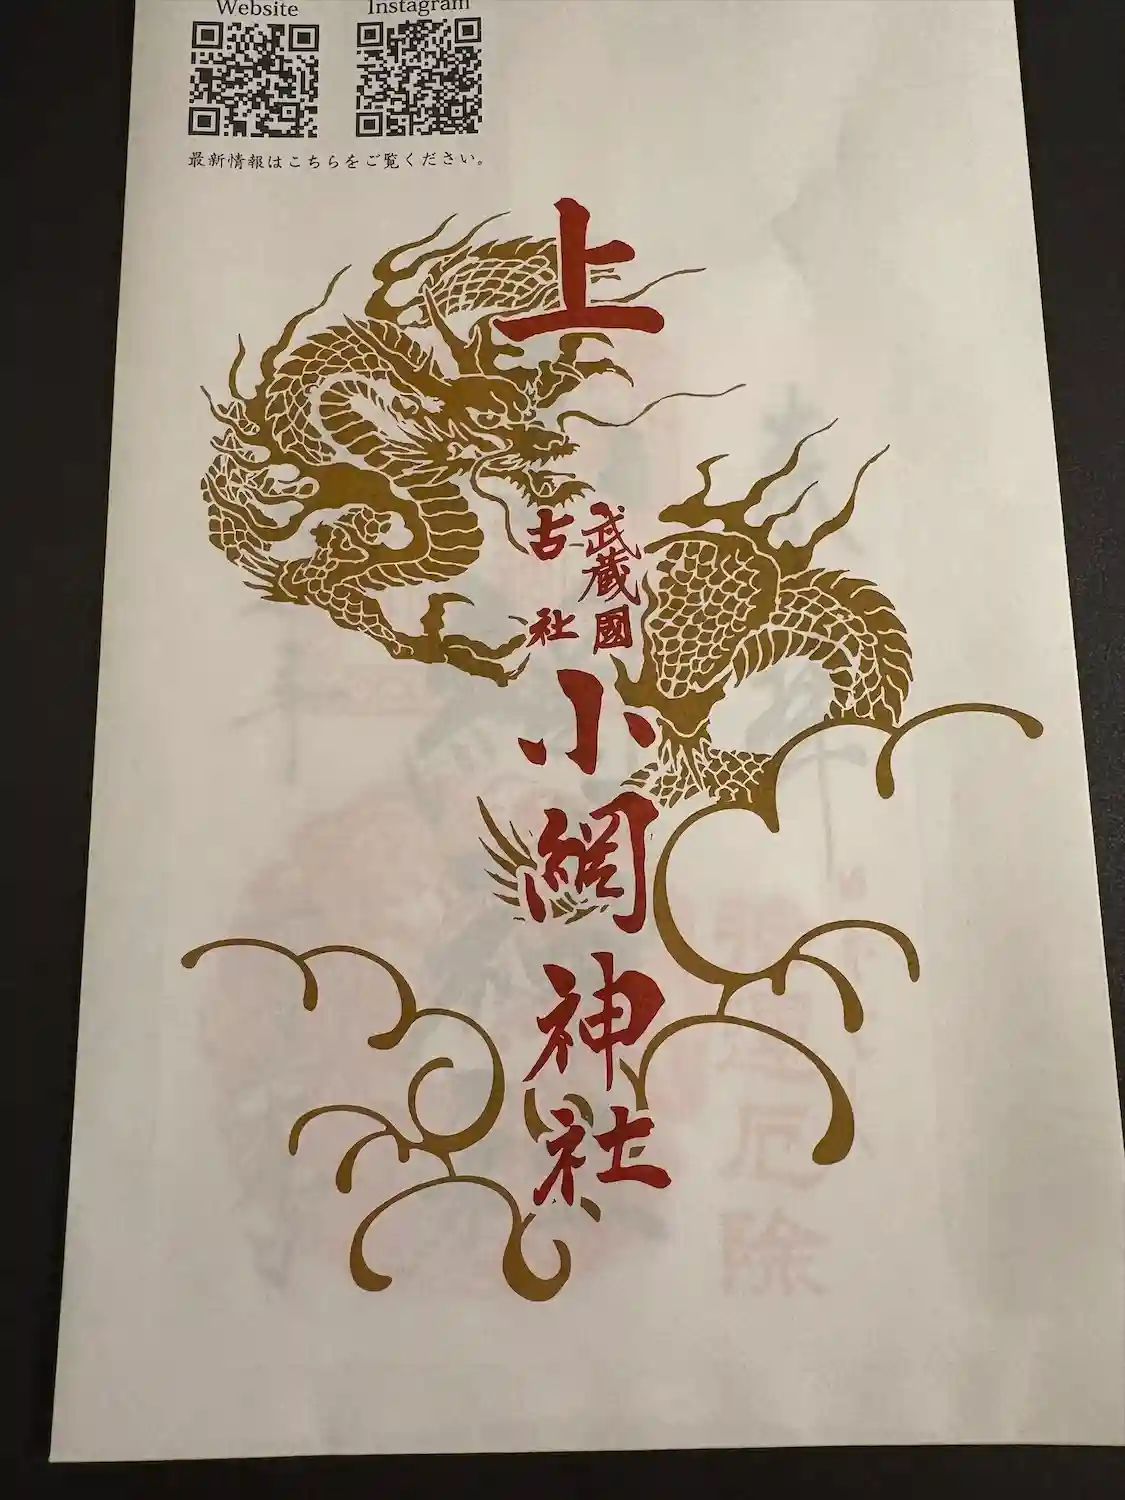 Website
Instagram
最新情報はこちらをご覧ください。
上
武蔵國
古社
小網神社
厄除